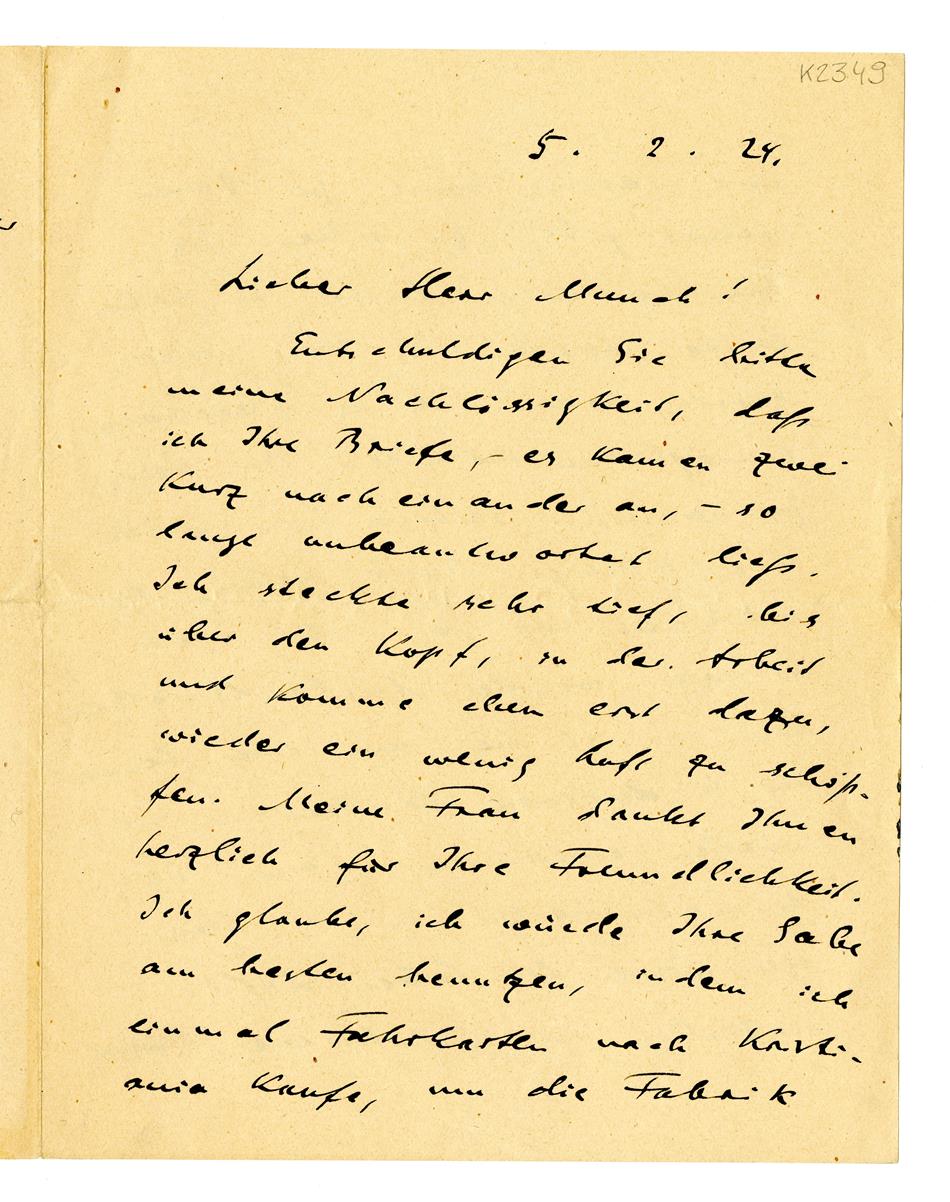 K2349
5. 2. 24.
Lieber Herr Munch!
Entschuldigen Sie bitte
meine Nachlässigkeit, daß
ich Ihre Briefe, – es kamen zwei
kurz nacheinander an, – so
lange unbeantwortet ließ.
Ich steckte sehr tief, bis
über den Kopf, in der Arbeit
und komme eben erst dazu,
wieder ein wenig Luft zu schöp-
fen. Meine Frau dankt Ihnen
herzlich für Ihre Freundlichkeit.
Ich glaube, ich würde Ihre Gabe
am besten benutzen, indem ich
einmal Fahrkarten nach Kristi-
ania kaufe, um die Fabrik